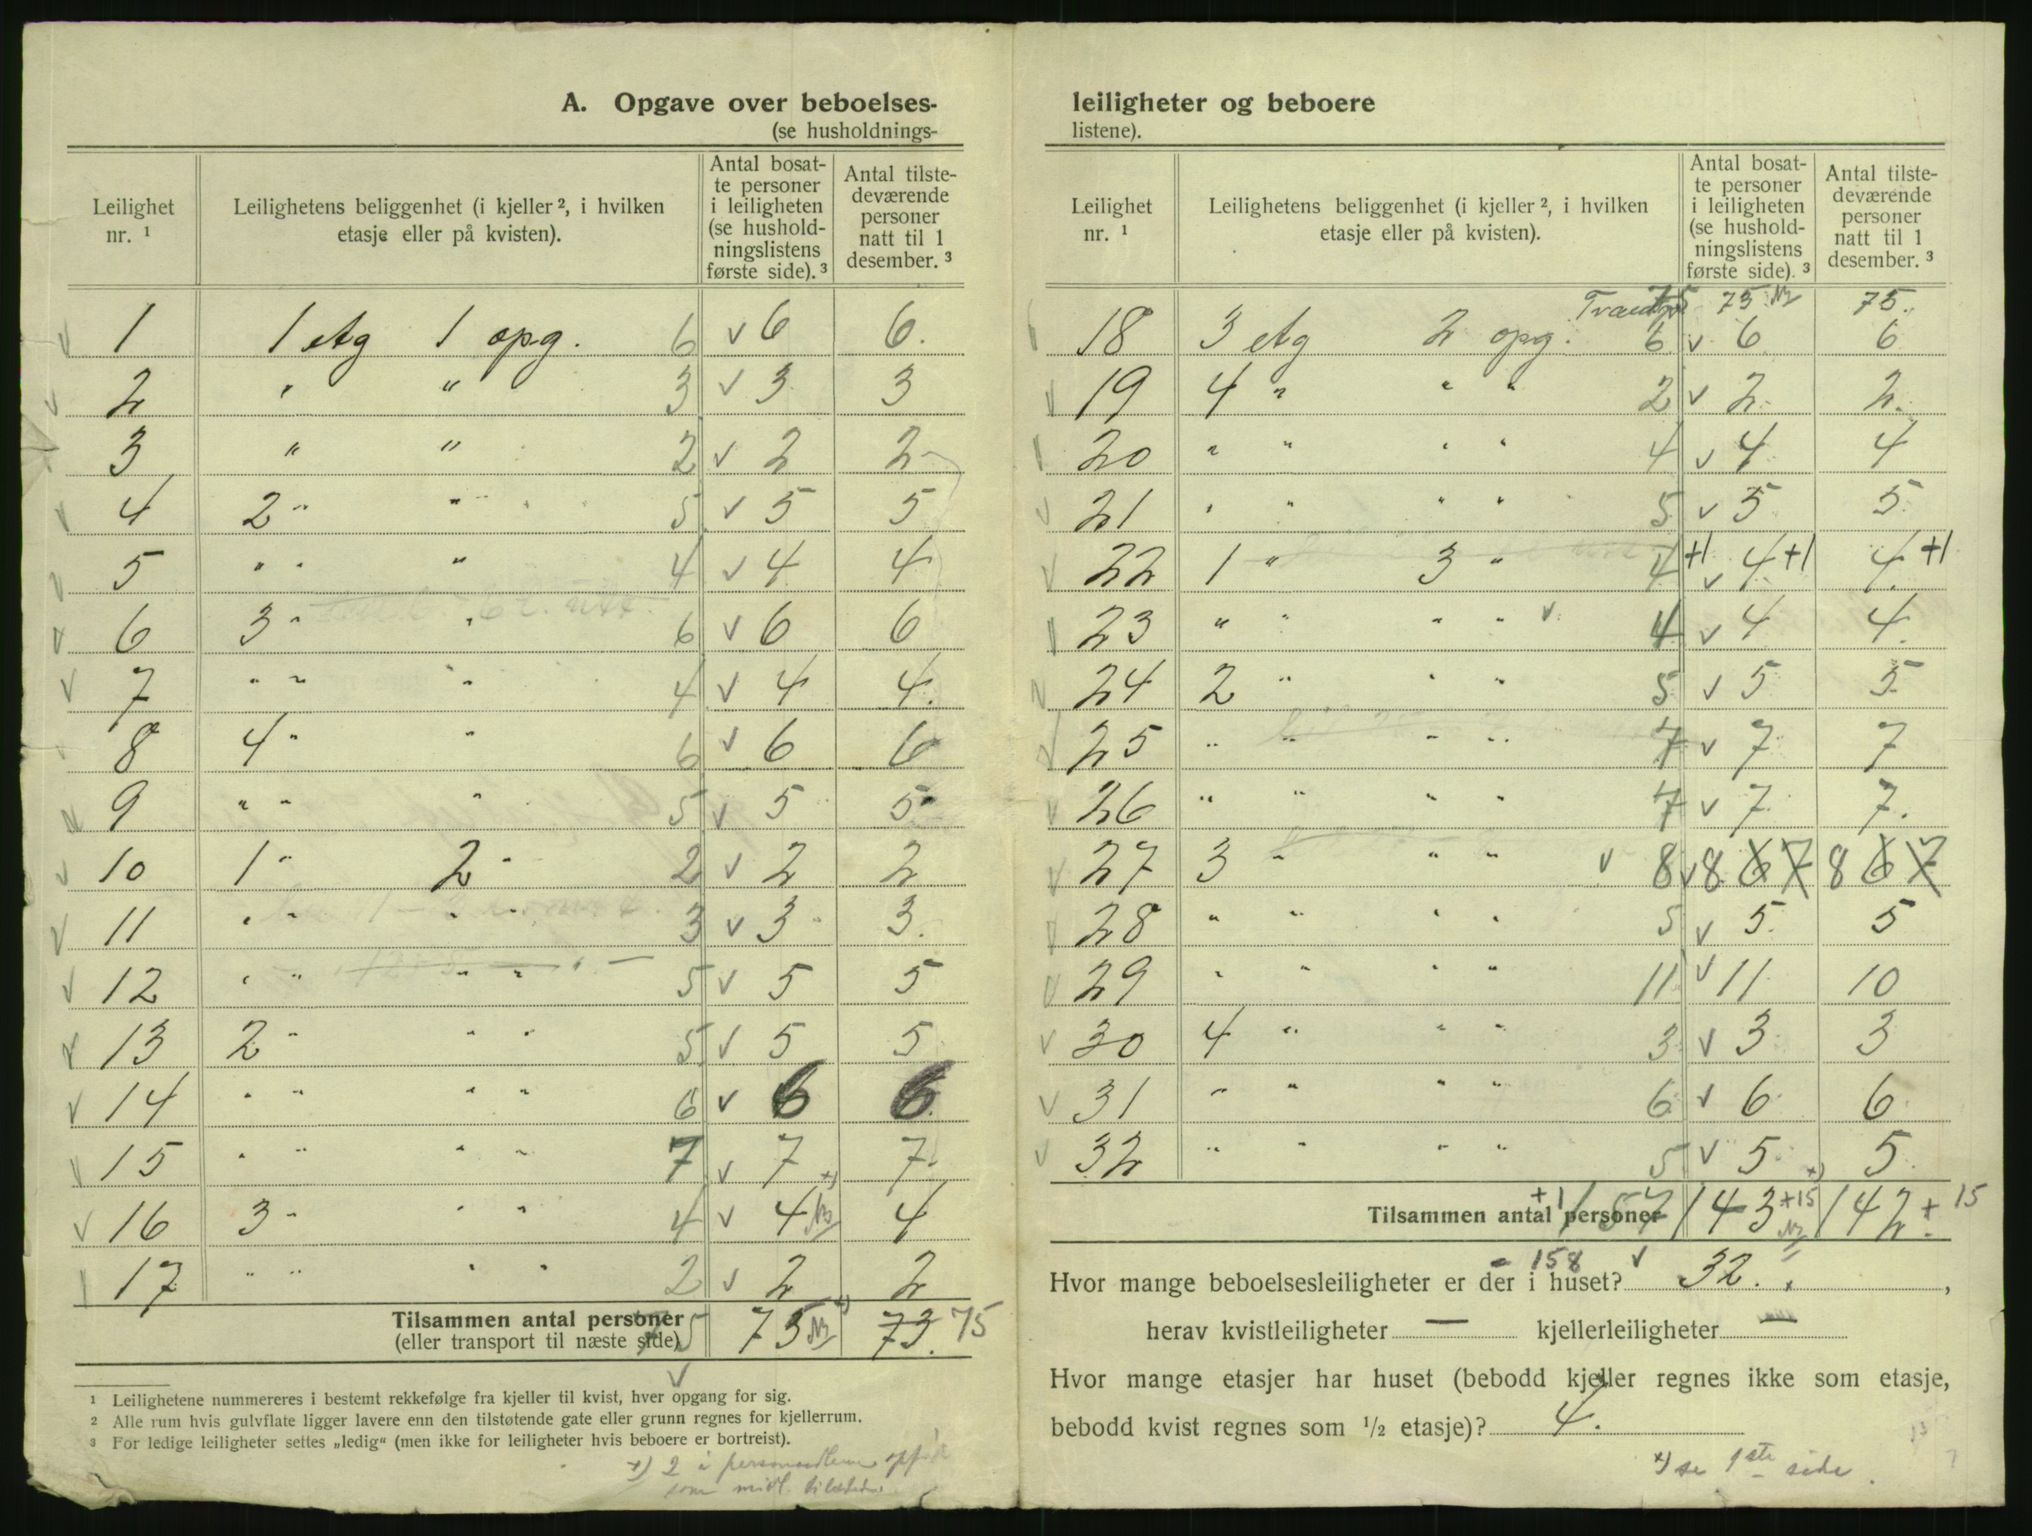 A. Opgave over beboelses-
(se husholdnings-
Leilighet nr. ¹ | Leilighetens beliggenhet (i kjeller ², i hvilken etasje eller på kvisten). | Antal bosatte personer i leiligheten (se husholdningslistens første side). ³ | Antal tilstedeværende personer natt til 1 desember. ³
1 1 etg 1 opg. 6 v 6 6.
2 " " 3 v 3 3
3 " " 2 v 2 2
4 2 " " 5 v 5 5
5 " " " 4 v 4 4
6 3 " " 6 v 6 6
7 " " " 4 v 4 4.
8 4 " " 6 v 6 6
9 " " " 5 v 5 5
10 1 " 2 " 2 v 2 2
11 " " " " 3 v 3 3.
12 " " " " 5 v 5 5
13 2 " " " 5 v 5 5
14 " " " " 6 v 6 6.
15 " " " " 7 v 7 7.
16 3 " " " 4 v 4 4
17 " " " " 2 v 2 2
Tilsammen antal personer
(eller transport til næste side) 75 73 73. 75
¹ Leilighetene nummereres i bestemt rekkefølge fra kjeller til kvist, hver opgang for sig.
² Alle rum hvis gulvflate ligger lavere enn den tilstøtende gate eller grunn regnes for kjellerrum.
³ For ledige leiligheter settes „ledig" (men ikke for leiligheter hvis beboere er bortreist).
x) 2 i personsedlene opført
som midl. tilstede.
leiligheter og beboere
listene).
Leilighet nr. ¹ | Leilighetens beliggenhet (i kjeller ², i hvilken etasje eller på kvisten). | Antal bosatte personer i leiligheten (se husholdningslistens første side). ³ | Antal tilstedeværende personer natt til 1 desember. ³
75 75 75.
18 3 etg 2 opg. 6 v 6 6
19 4 " " " 2 v 2 2.
20 " " " " 4 v 4 4
21 " " " " 5 v 5 5
22 1 " 3 " 4 +1 v 4 +1 4. +1
23 " " " " v 4 v 4 4.
24 2 " " " 5 v 5 5
25 " " " " 7 v 7 7
26 " " " " 7 v 7 7.
27 3 " " " v 8 v 8 6 7 8 6 7
28 " " " " 5 v 5. 5
29 " " " " 11 v 11 10
30 4 " " " 3 v 3 3
31 " " " " 6 v 6 6
32 " " " " 5 v 5 5.
Tilsammen antal personer +1 157 143 +15 142 + 15
Hvor mange beboelsesleiligheter er der i huset? 158 v 32.
herav kvistleiligheter — kjellerleiligheter —
Hvor mange etasjer har huset (bebodd kjeller regnes ikke som etasje,
bebodd kvist regnes som ½ etasje)? 4.
x) se 1ste side.